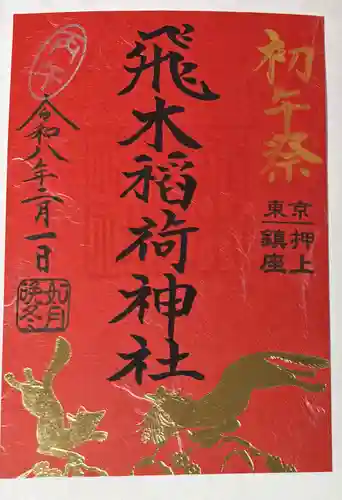 初午祭
東京
押上
鎮座
飛木稲荷神社
丙午
令和八年二月一日
如月
晩冬